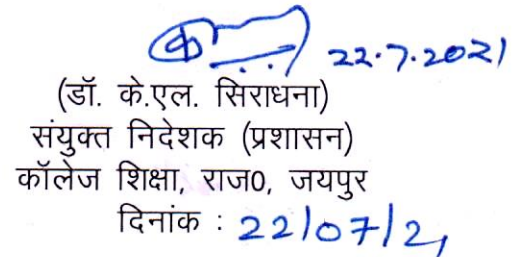 22.7.2021
(डॉ. के.एल. सिराधना)
संयुक्त निदेशक (प्रशासन)
कॉलेज शिक्षा, राज0, जयपुर
दिनांक : 22/07/21